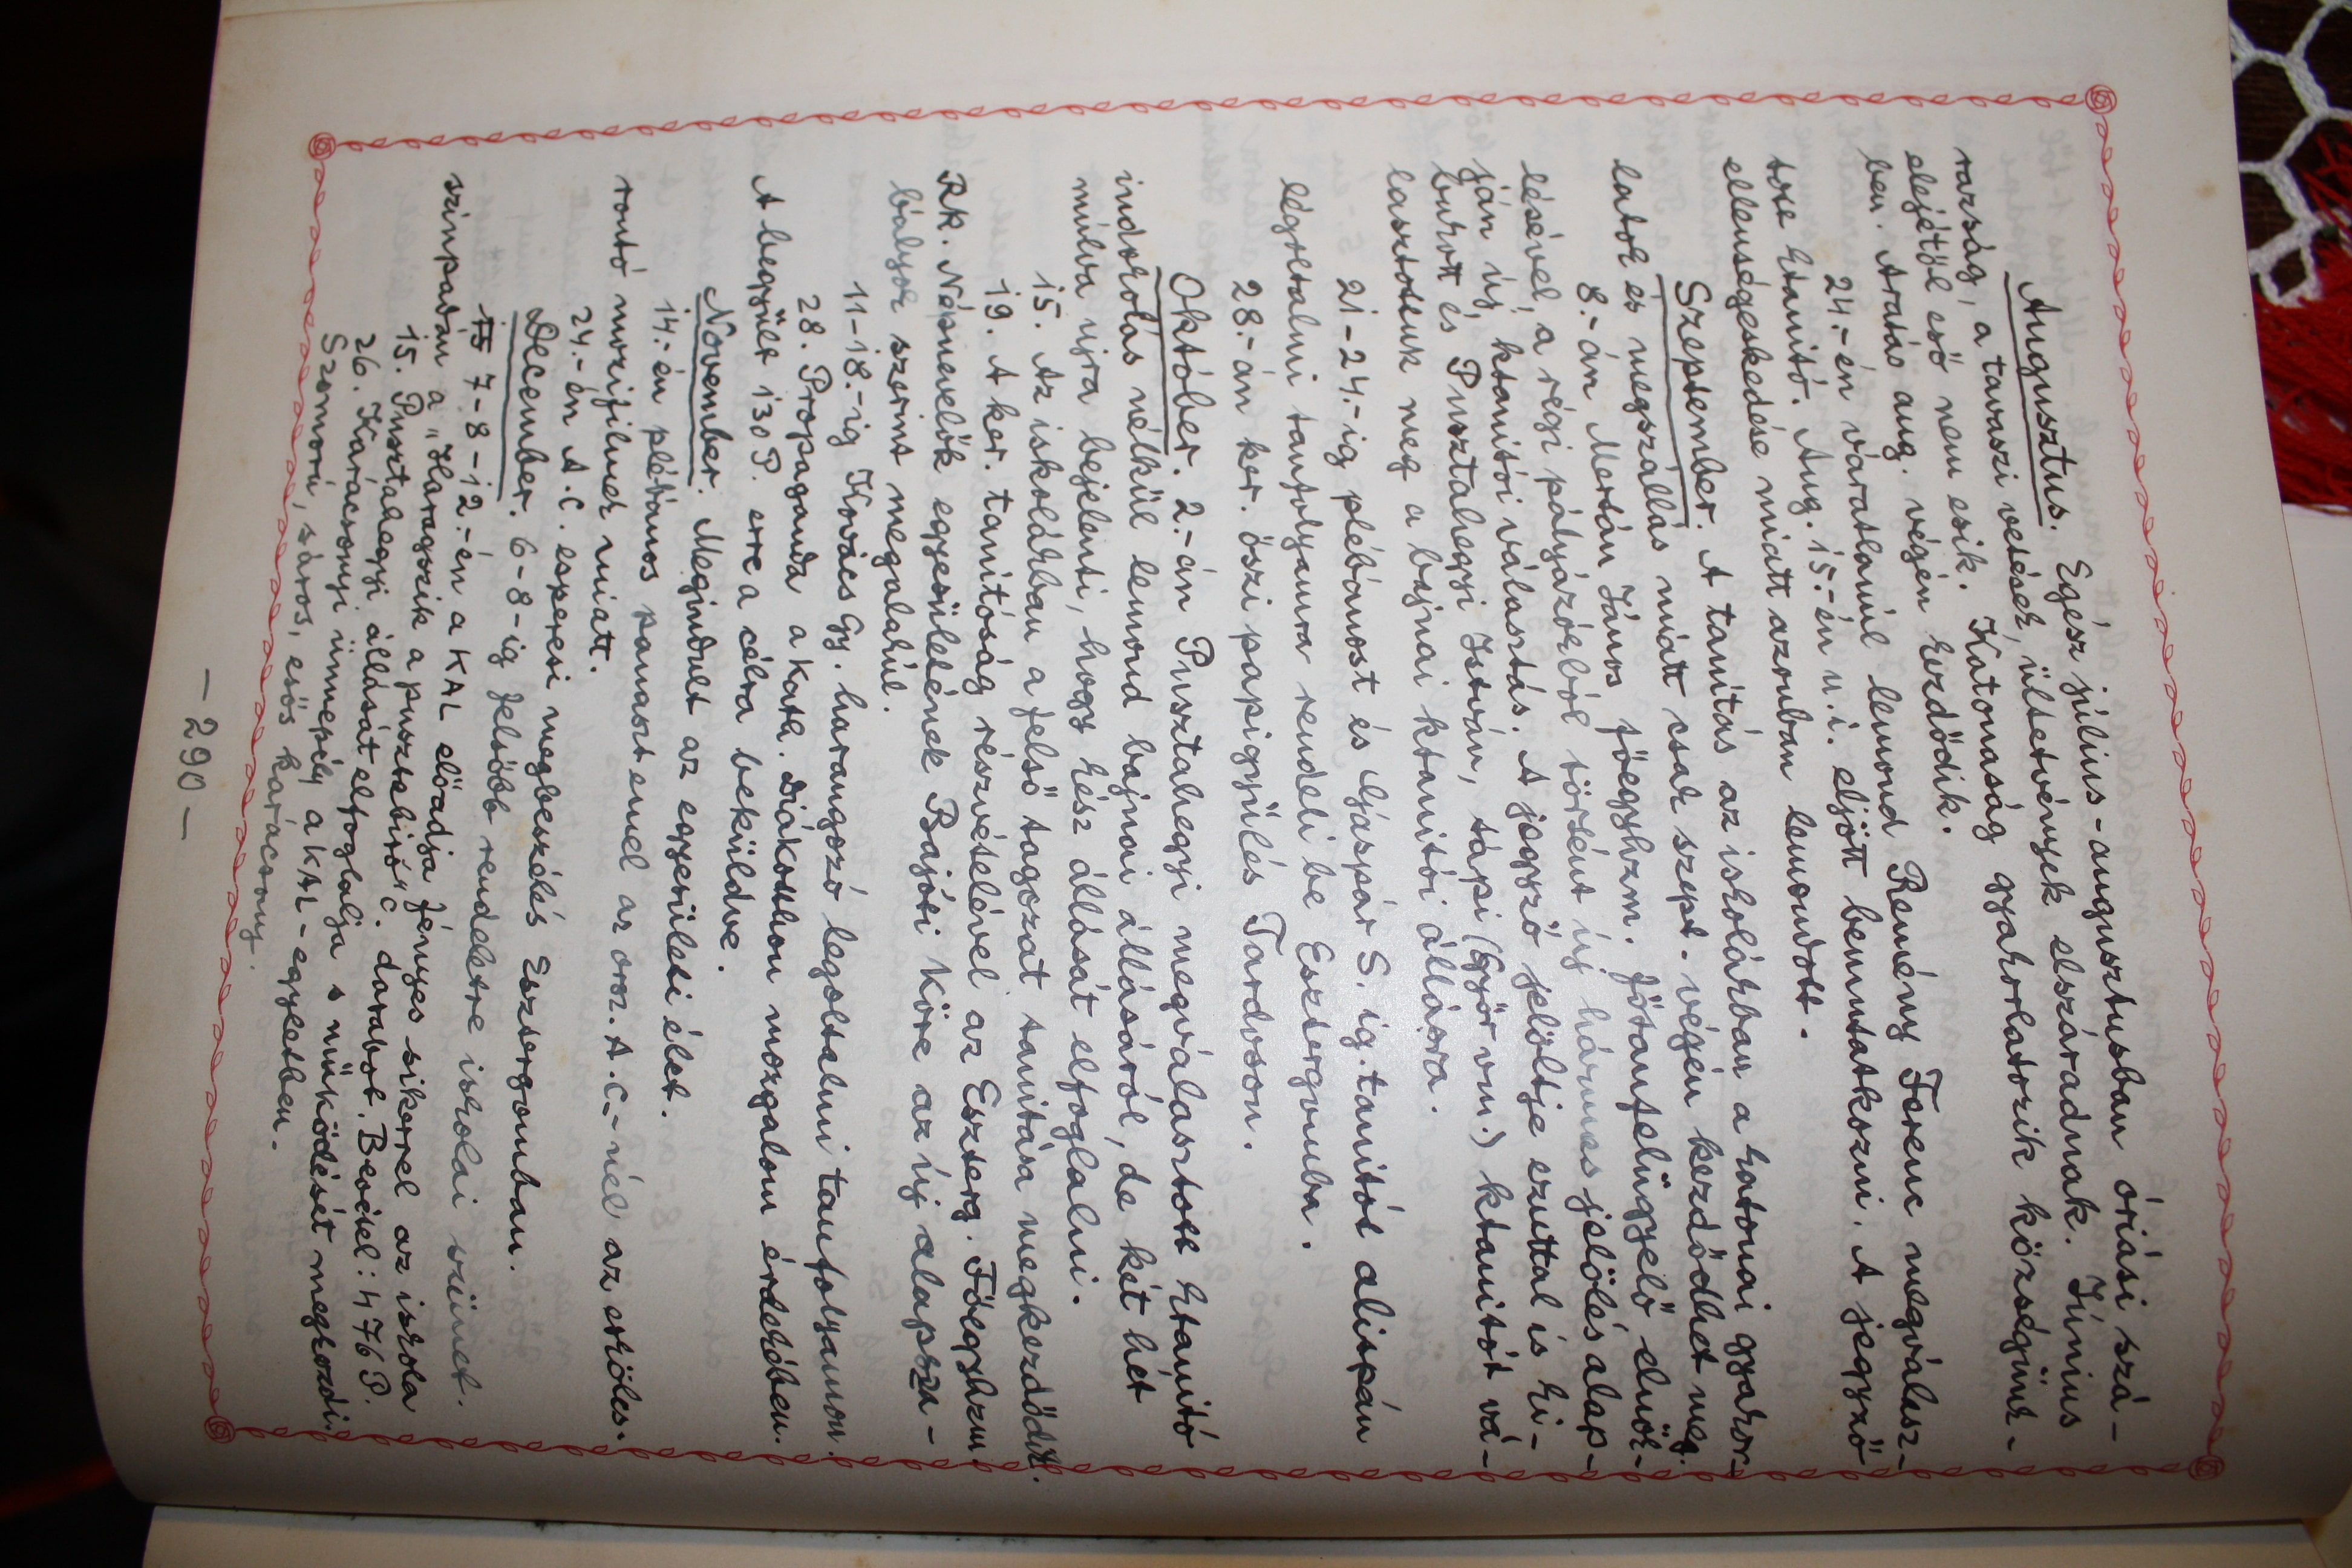 Augusztus. Egész július-augusztusban óriási szá-
razság, a tavaszi vetések, ültetvények elszáradnak. Június
elejétől eső nem esik. Katonaság gyakorlatozik községünk-
ben. Aratás aug. végén kezdődik.
24.-én váratlanúl lemond Remény Ferenc megválasz-
tott ktanító. Aug. 15.-én u.i. eljött bemutatkozni. A jegyző
ellenségeskedése miatt azonban lemondott.
Szeptember. A tanítás az iskolákban a katonai gyakor-
latok és megszállás miatt csak szept. végén kezdődhet meg.
8.-án Mertán János főegyhzm. főtanfelügyelő, elnök-
lésével, a régi pályázókból történt új hármas jelölés alap-
ján új, ktanítói választás. A jegyző jelöltje ezuttal is ki-
bukott és Pusztahegyi István, tápi (Győr vm.) ktanítót vá-
lasztottuk meg a bajnai ktanítói állásra.
21-24.-ig plébánost és Gáspár S. ig. tanítót alispán
légoltalmi tanfolyamra rendeli be Esztergomba.
28.-án ker. őszi papigyűlés Tardoson.
Október. 2.-án Pusztahegyi megválasztott ktanító
indokolás nélkül lemond bajnai állásáról, de két hét
múlva ujra bejelenti, hogy kész állását elfoglalni.
15. Az iskolákban a felső tagozat tanítása megkezdődik.
19. A ker. tanítóság részvételével az Eszterg. Főegyhzm.
Rk. Népnevelők egyesületének Bajóti Köre az új alapsza-
bályok szerint megalakúl.
11-18.-ig Kovács Gy. harangozó légoltalmi tanfolyamon.
28. Propaganda a Kath. Diákotthon mozgalom érdekében.
A begyült 130 P. erre a célra beküldve.
November. Megindult az egyesületi élet.
14.-én plébános panaszt emel az orsz. A.C.-nél az erköles-
rontó mozifilmek miatt.
24.-én A.C. esperesi megbeszélés Esztergomban.
December. 6-8-ig felsőbb rendeletre iskolai szünet.
7-8-12.-én a KAL előadja fényes sikerrel az iskola
szinpadán a „Haragszik a pusztabíró" c. darabot. Bevétel: 476 P.
15. Pusztahegyi állását elfoglalja s működését megkezdi.
26. Karácsonyi ünnepély a KAL-egyletben.
Szomorú, sáros, esős karácsony.
-290-